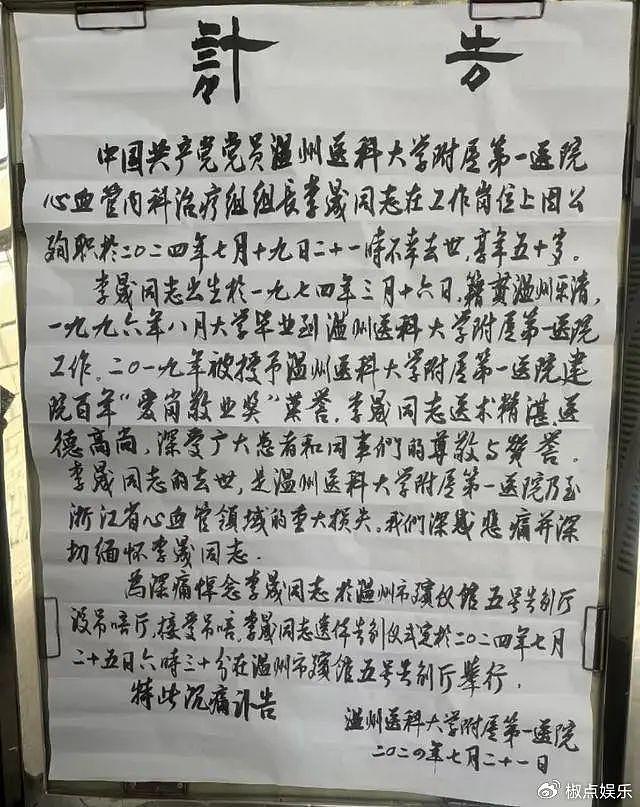 訃 告
中国共产党党员温州医科大学附属第一医院
心血管内科治疗组组长李晟同志在工作岗位上因公
殉职於二〇二四年七月十九日二十一時不幸去世，享年五十岁。
李晟同志出生於一九七四年三月十六日，籍贯温州乐清，
一九九六年八月大学毕业到温州医科大学附属第一医院
工作。二〇一九年被授予温州医科大学附属第一医院建
院百年“爱岗敬业奖”荣誉。李晟同志医术精湛，医
德高尚，深受广大患者和同事们的尊敬与赞誉。
李晟同志的去世，是温州医科大学附属第一医院乃至
浙江省心血管领域的重大损失。我们深感悲痛并深
切缅怀李晟同志．
為深痛悼念李晟同志於温州市殡仪馆五号告别厅
设吊唁厅，接受吊唁，李晟同志遗体告别仪式定於二〇二四年七月
二十五日六時三十分在温州市殡馆五号告别厅举行．
特此沉痛讣告
温州医科大学附属第一医院
二〇二四年七月二十一日
椒点娱乐